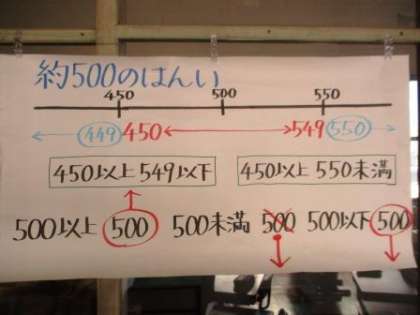 約500のはんい
450 500 550
449 450 549 550
450以上549以下 450以上550未満
500以上 500 500未満 500 500以下 500